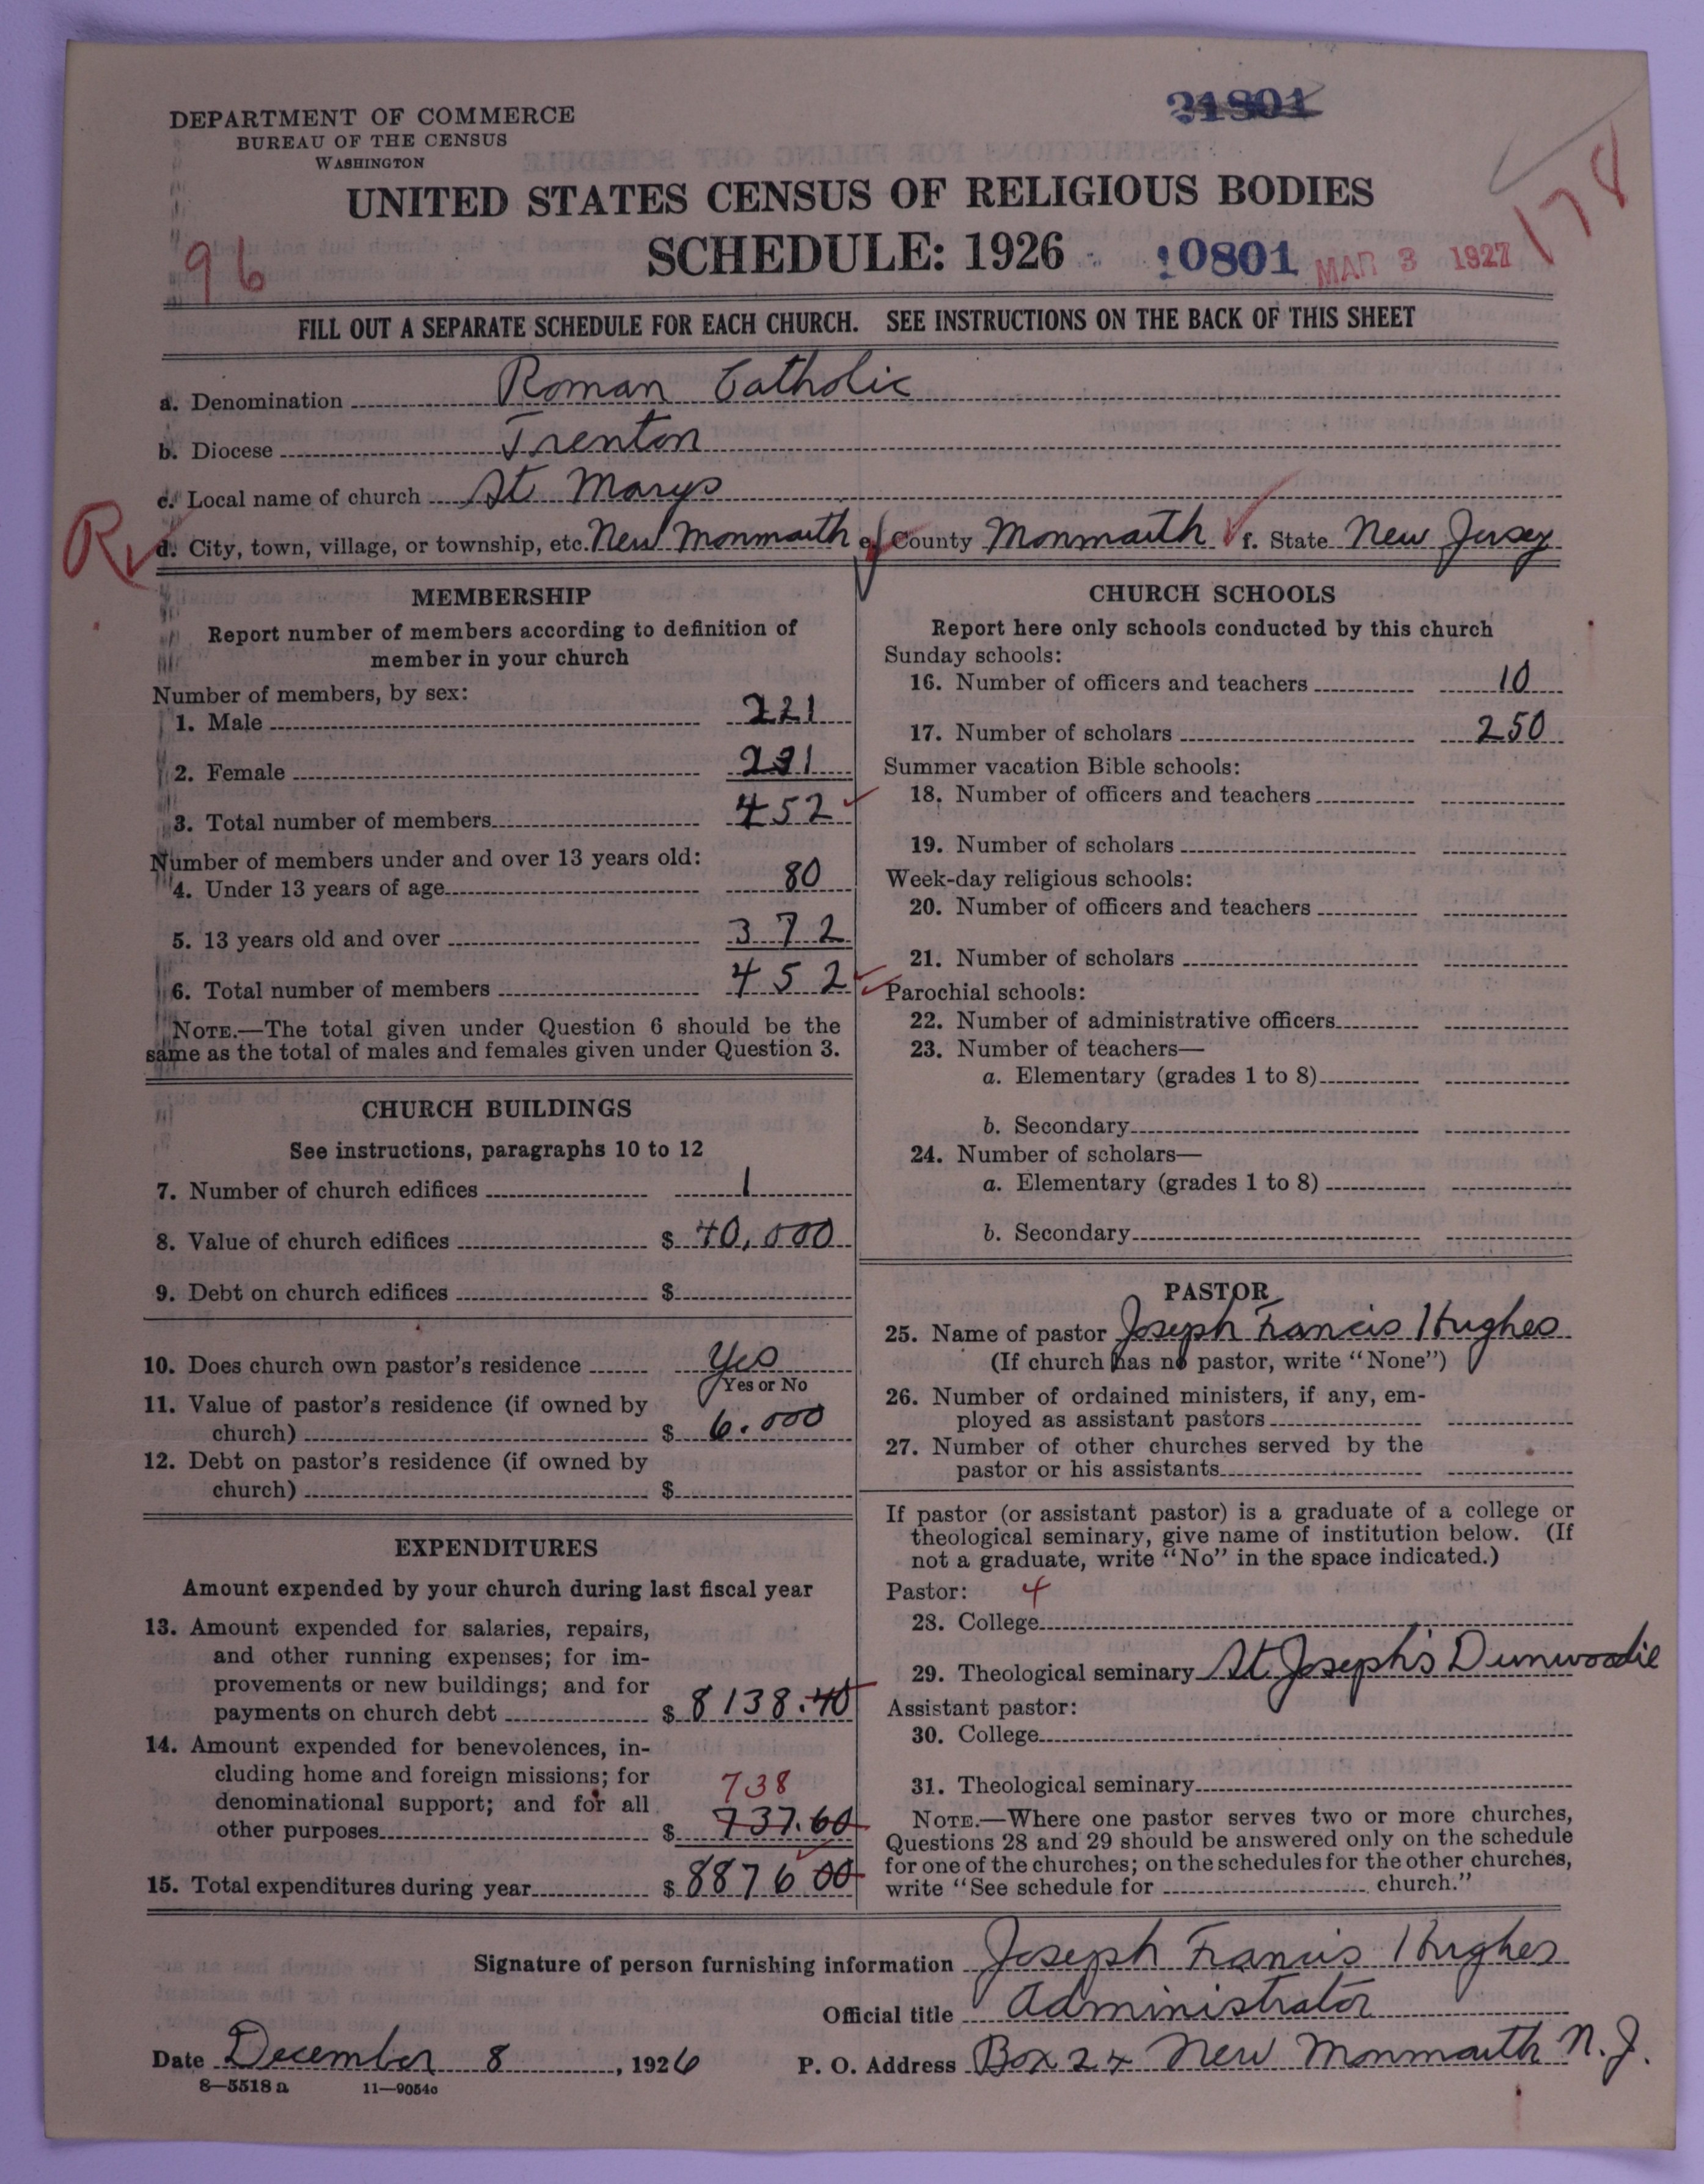 21801
DEPARTMENT OF COMMERCE
BUREAU OF THE CENSUS
WASHINGTON
UNITED STATES CENSUS OF RELIGIOUS BODIES
178
96
SCHEDULE: 1926
10801
MAR 3 1927
FILL OUT A SEPARATE SCHEDULE FOR EACH CHURCH. SEE INSTRUCTIONS ON THE BACK OF THIS SHEET
a. Denomination Roman Catholic
b. Diocese Trenton
c. Local name of church St Marys
R
d. City, town, village, or township, etc. New Monmouth e. County Monmouth f. State New Jersey
MEMBERSHIP
Report number of members according to definition of
member in your church
Number of members, by sex:
1. Male 221
2. Female 231
3. Total number of members 452
Number of members under and over 13 years old:
4. Under 13 years of age 80
5. 13 years old and over 372
6. Total number of members 452
NOTE.—The total given under Question 6 should be the
same as the total of males and females given under Question 3.
CHURCH BUILDINGS
See instructions, paragraphs 10 to 12
7. Number of church edifices 1
8. Value of church edifices $ 40,000
9. Debt on church edifices $
10. Does church own pastor's residence Yes
Yes or No
11. Value of pastor's residence (if owned by
church) $ 6.000
12. Debt on pastor's residence (if owned by
church) $
EXPENDITURES
Amount expended by your church during last fiscal year
13. Amount expended for salaries, repairs,
and other running expenses; for im-
provements or new buildings; and for
payments on church debt $ 8138.40
14. Amount expended for benevolences, in-
cluding home and foreign missions; for
738
denominational support; and for all
other purposes $ 737.60
15. Total expenditures during year $ 8876 00
CHURCH SCHOOLS
Report here only schools conducted by this church
Sunday schools:
16. Number of officers and teachers 10
17. Number of scholars 250
Summer vacation Bible schools:
18. Number of officers and teachers
19. Number of scholars
Week-day religious schools:
20. Number of officers and teachers
21. Number of scholars
Parochial schools:
22. Number of administrative officers
23. Number of teachers—
a. Elementary (grades 1 to 8)
b. Secondary
24. Number of scholars—
a. Elementary (grades 1 to 8)
b. Secondary
PASTOR
25. Name of pastor Joseph Francis Hughes
(If church has no pastor, write "None")
26. Number of ordained ministers, if any, em-
ployed as assistant pastors
27. Number of other churches served by the
pastor or his assistants
If pastor (or assistant pastor) is a graduate of a college or
theological seminary, give name of institution below. (If
not a graduate, write "No" in the space indicated.)
Pastor: 4
28. College
29. Theological seminary St. Joseph's Dunwoodie
Assistant pastor:
30. College
31. Theological seminary
NOTE.—Where one pastor serves two or more churches,
Questions 28 and 29 should be answered only on the schedule
for one of the churches; on the schedules for the other churches,
write "See schedule for church."
Signature of person furnishing information Joseph Francis Hughes
Official title Administrator
Date December 8, 1926 P. O. Address Box 24 New Monmouth N. J.
8—5518 a 11—9054o